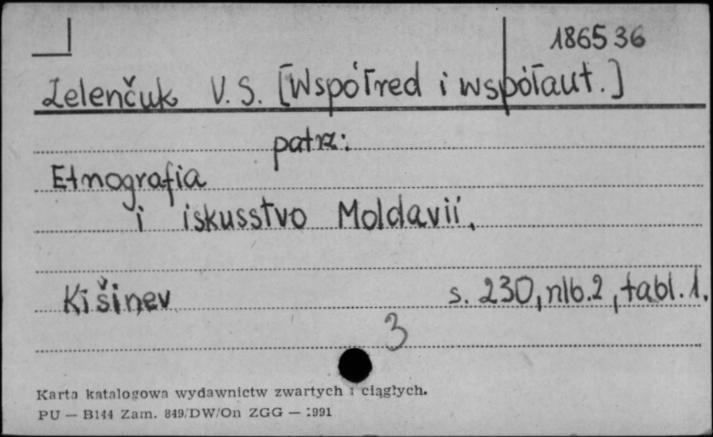 186536
Zelenčuk V. S. [Współred i współaut.]
patrz:
Etnografia
i iskusstvo Moldavii,
Kišinev s. 230, nlb. 2, tabl. 1.
3
Karta katalogowa wydawnictw zwartych i ciągłych.
PU — B144 Zam. 849/DW/On ZGG — 1991